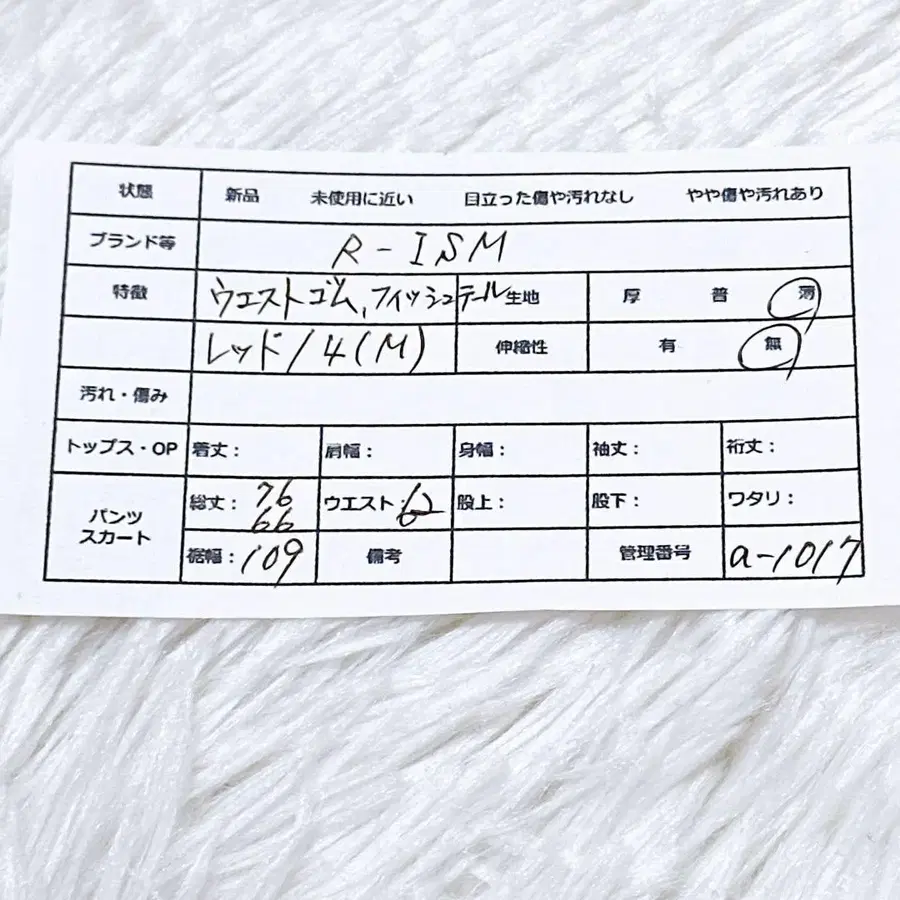 状態 新品 未使用に近い 目立った傷や汚れなし やや傷や汚れあり
ブランド等 R-ISM
特徴 ウエストゴム、フィッシュテール 生地 厚 普 薄
レッド/4(M) 伸縮性 有 無
汚れ・傷み
トップス・OP 着丈: 肩幅: 身幅: 袖丈: 裄丈:
パンツ スカート 総丈: 76 66 ウエスト: 股上: 股下: ワタリ:
裾幅: 109 備考 管理番号 a-1017